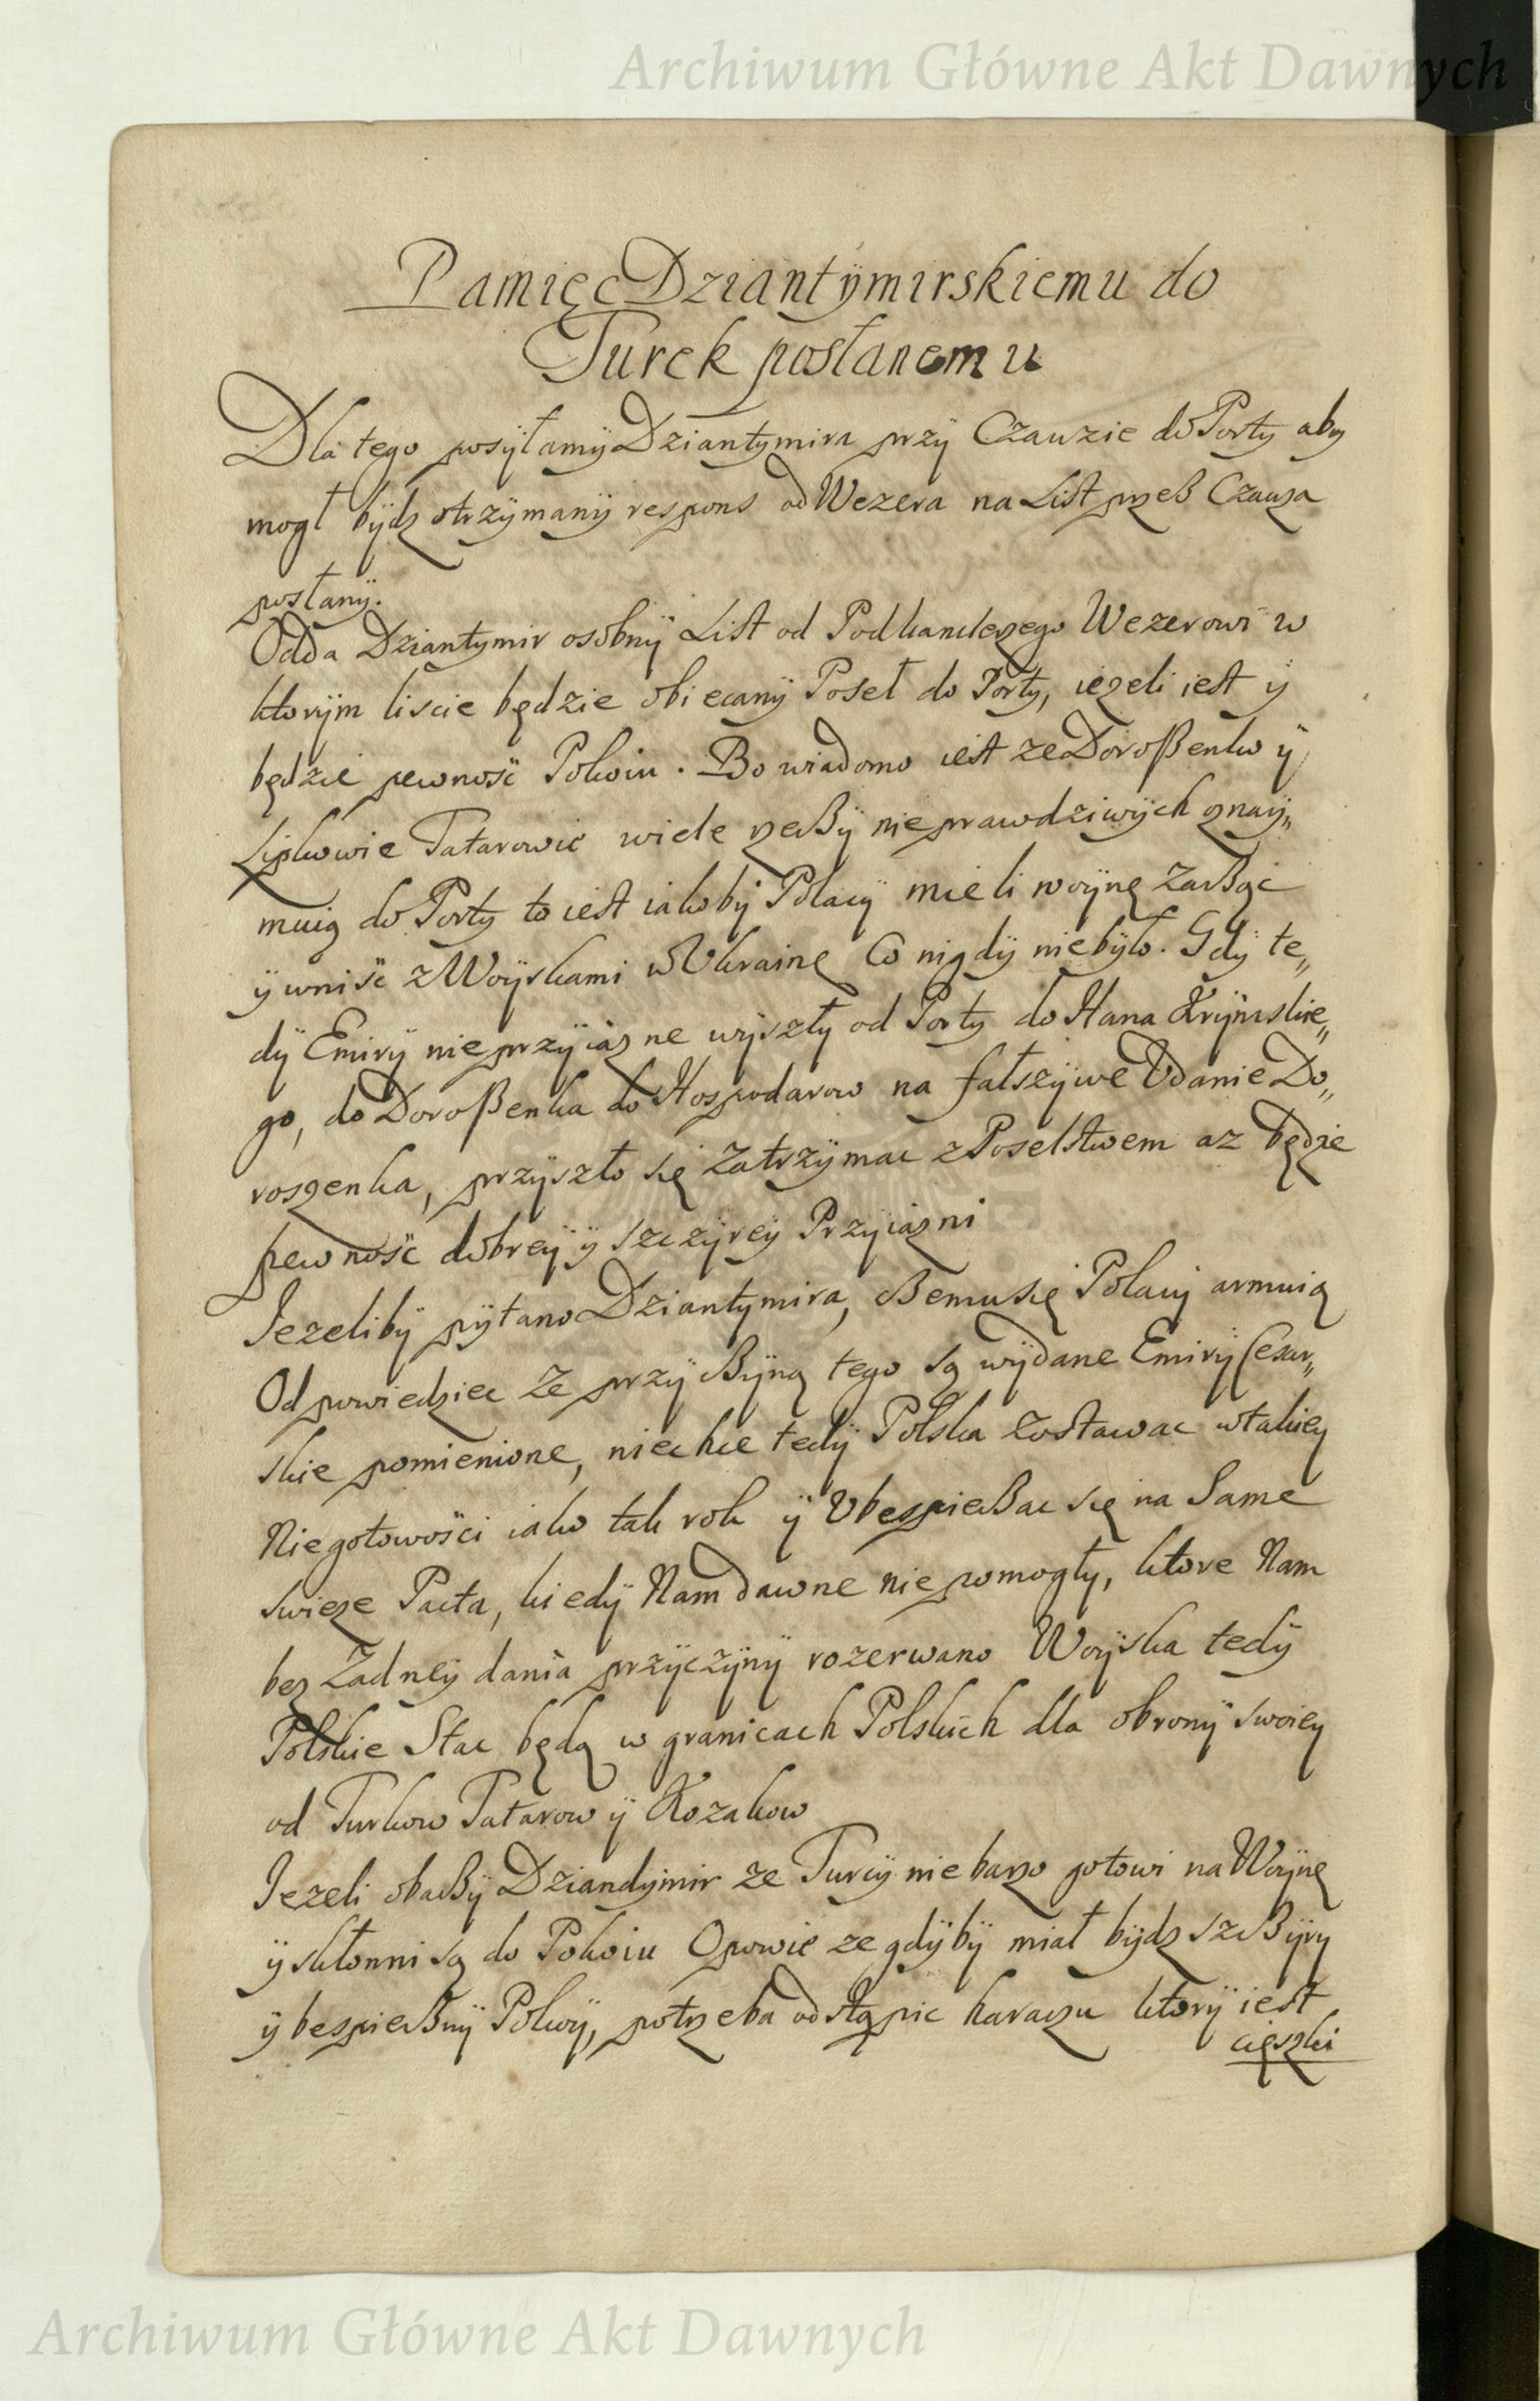 Archiwum Główne Akt Dawnych
Pamięc Dziantÿmirskiemu do
Turek posłanemu
Dla tego posÿłamÿ Dziantymira przÿ Czauzie do Porty aby
mogł bÿdz otrzÿmanÿ respons od Wezera na List przeß Czauza
posłanÿ.
Odda Dziantymir osobnÿ List od Podkanclerzego Wezerowi w
ktorÿm liscie będzie obiecanÿ Poseł do Porty, iezeli iest ÿ
będzie pewnosc Pokoiu. Bo wiadomo iest ze Doroßenko ÿ
Lipkowie Tatarowie wiele rzeczÿ nieprawdziwÿch znaÿ„
muią do Porty to iest iakobÿ Polacÿ mieli woÿnę zacząc
ÿ wnisc z Woÿskami w Ukrainę Co nigdÿ niebÿło. Gdÿ te„
dÿ Emirÿ nieprzÿiazne wÿszłÿ od Porty do Hana Krÿmskie„
go, do Doroßenka do Hospodarow na fałszÿwe Vdanie Do„
roszenka, przÿszło się zatrzÿmac z Poselstwem az będzie
pewnosc dobreÿ ÿ szczÿreÿ Przÿiazni
Iezelibÿ pÿtano Dziantymira, czemu się Polacÿ armuią
Odpowiedziec ze przÿczÿną tego są wÿdane Emirÿ Cesar„
skie pomienione, niechce tedÿ Polska zostawac w takieÿ
Niegotowosci iako tak rok ÿ Vbespieczac się na Same
swieze Pacta, kiedÿ Nam dawne niepomogłÿ, ktore Nam
bez zadneÿ dania przÿczÿnÿ rozerwano Woÿska tedÿ
Polskie Stac będą w granicach Polskich dla obronÿ swoieÿ
od Turkow Tatarow ÿ Kozakow
Iezeli obaczÿ Dziandÿmir ze Turcÿ nie barzo gotowi na Woÿnę
ÿ skłonni są do Pokoiu Opowie ze gdÿbÿ miał bÿdz szczÿrÿ
ÿ bespiecznÿ Pokoÿ, potrzeba odstąpic haraczu ktorÿ iest
cięszki
Archiwum Główne Akt Dawnych